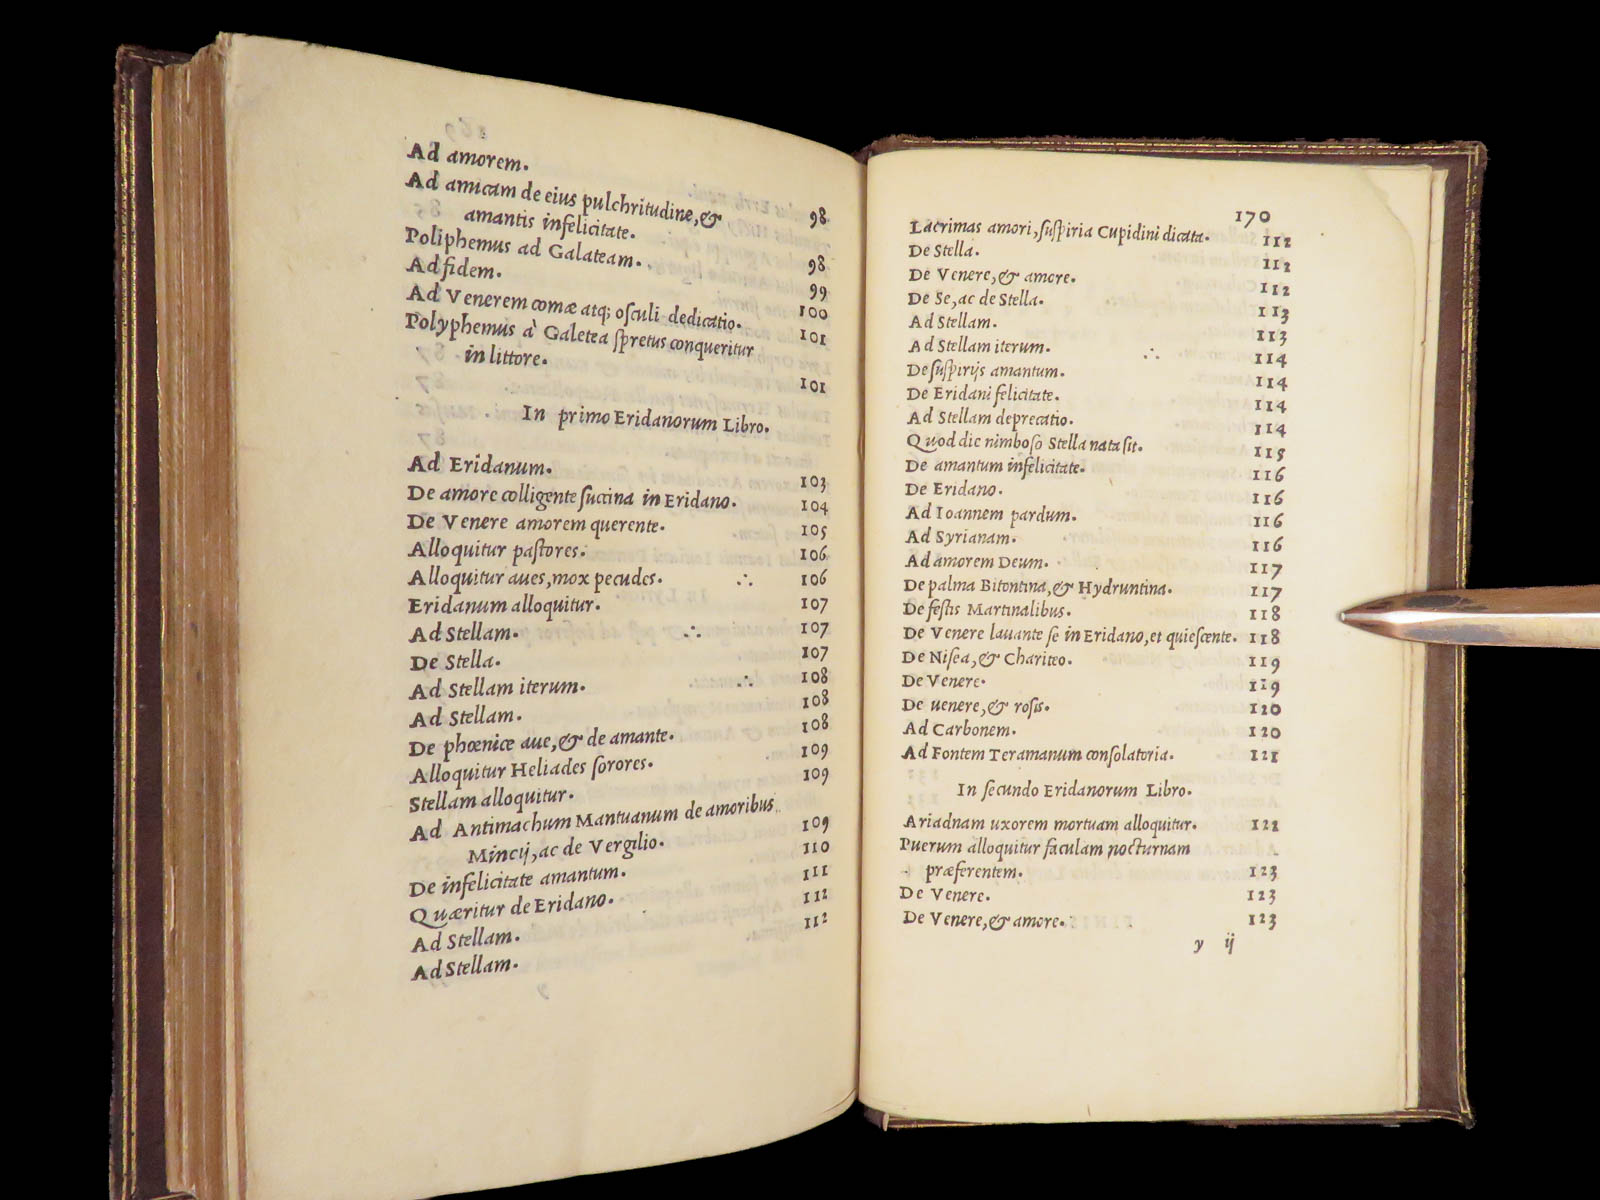 Ad amorem. 98
Ad amicam de eius pulchritudine,&
amantis infelicitate. 98
Poliphemus ad Galateam. 99
Ad fidem. 100
Ad Venerem comæ atq; osculi dedicatio. 101
Polyphemus à Galetea spretus conqueritur
in littore. 101
In primo Eridanorum Libro.
Ad Eridanum. 103
De amore colligente succina in Eridano. 104
De Venere amorem querente. 105
Alloquitur pastores. 106
Alloquitur aues, mox pecudes. ∴ 106
Eridanum alloquitur. 107
Ad Stellam. ∴ 107
De Stella. 107
Ad Stellam iterum. ∴ 108
Ad Stellam. 108
De phœnice aue,& de amante. 108
Alloquitur Heliades sorores. 109
Stellam alloquitur. 109
Ad Antimachum Mantuanum de amoribus
Mincij, ac de Vergilio. 109
De infelicitate amantum. 110
Quæritur de Eridano. 111
Ad Stellam. 112
Ad Stellam. 112
170
Lacrimas amori, suspiria Cupidini dicata. 112
De Stella. 112
De Venere,& amore. 112
De Se, ac de Stella. 113
Ad Stellam. 113
Ad Stellam iterum. ∴ 114
De suspirijs amantum. 114
De Eridani felicitate. 114
Ad Stellam deprecatio. 114
Quod die nimboso Stella nata sit. 115
De amantum infelicitate. 116
De Eridano. 116
Ad Ioannem pardum. 116
Ad Syrianam. 116
Ad amorem Deum. 117
De palma Bitontina,& Hydruntina. 117
De festis Martinalibus. 118
De Venere lauante se in Eridano, et quiescente. 118
De Nisea,& Chariteo. 119
De Venere. 119
De uenere,& rosis. 120
Ad Carbonem. 120
Ad Fontem Teramanum consolatoria. 121
In secundo Eridanorum Libro.
Ariadnam uxorem mortuam alloquitur. 122
Puerum alloquitur faculam nocturnam
præferentem. 123
De Venere. 123
De Venere,& amore. 123
y ij